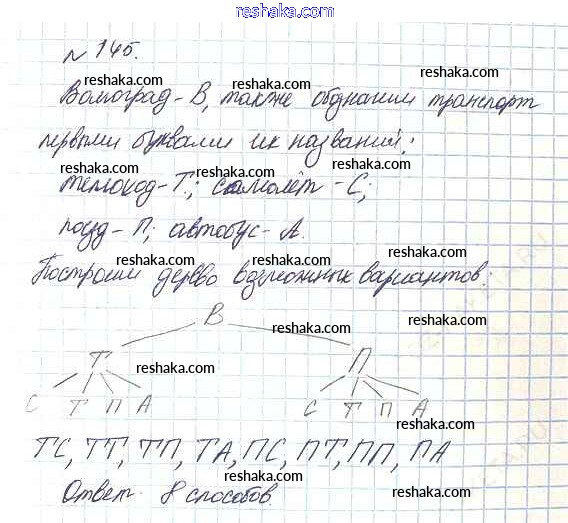 www.reshaka.com
№ 145.
reshaka.com
Волгоград - В, также обозначим транспорт
reshaka.com reshaka.com
первыми буквами их названий:
reshaka.com reshaka.com
теплоход - Т; самолёт - С;
поезд - П; автобус - А.
reshaka.com reshaka.com reshaka.com
Построим дерево возможных вариантов:
В
reshaka.com
Т П
reshaka.com
С Т П А С Т П А
reshaka.com reshaka.com
ТС, ТТ, ТП, ТА, ПС, ПТ, ПП, ПА
reshaka.com reshaka.com
Ответ: 8 способов.
www.reshaka.com